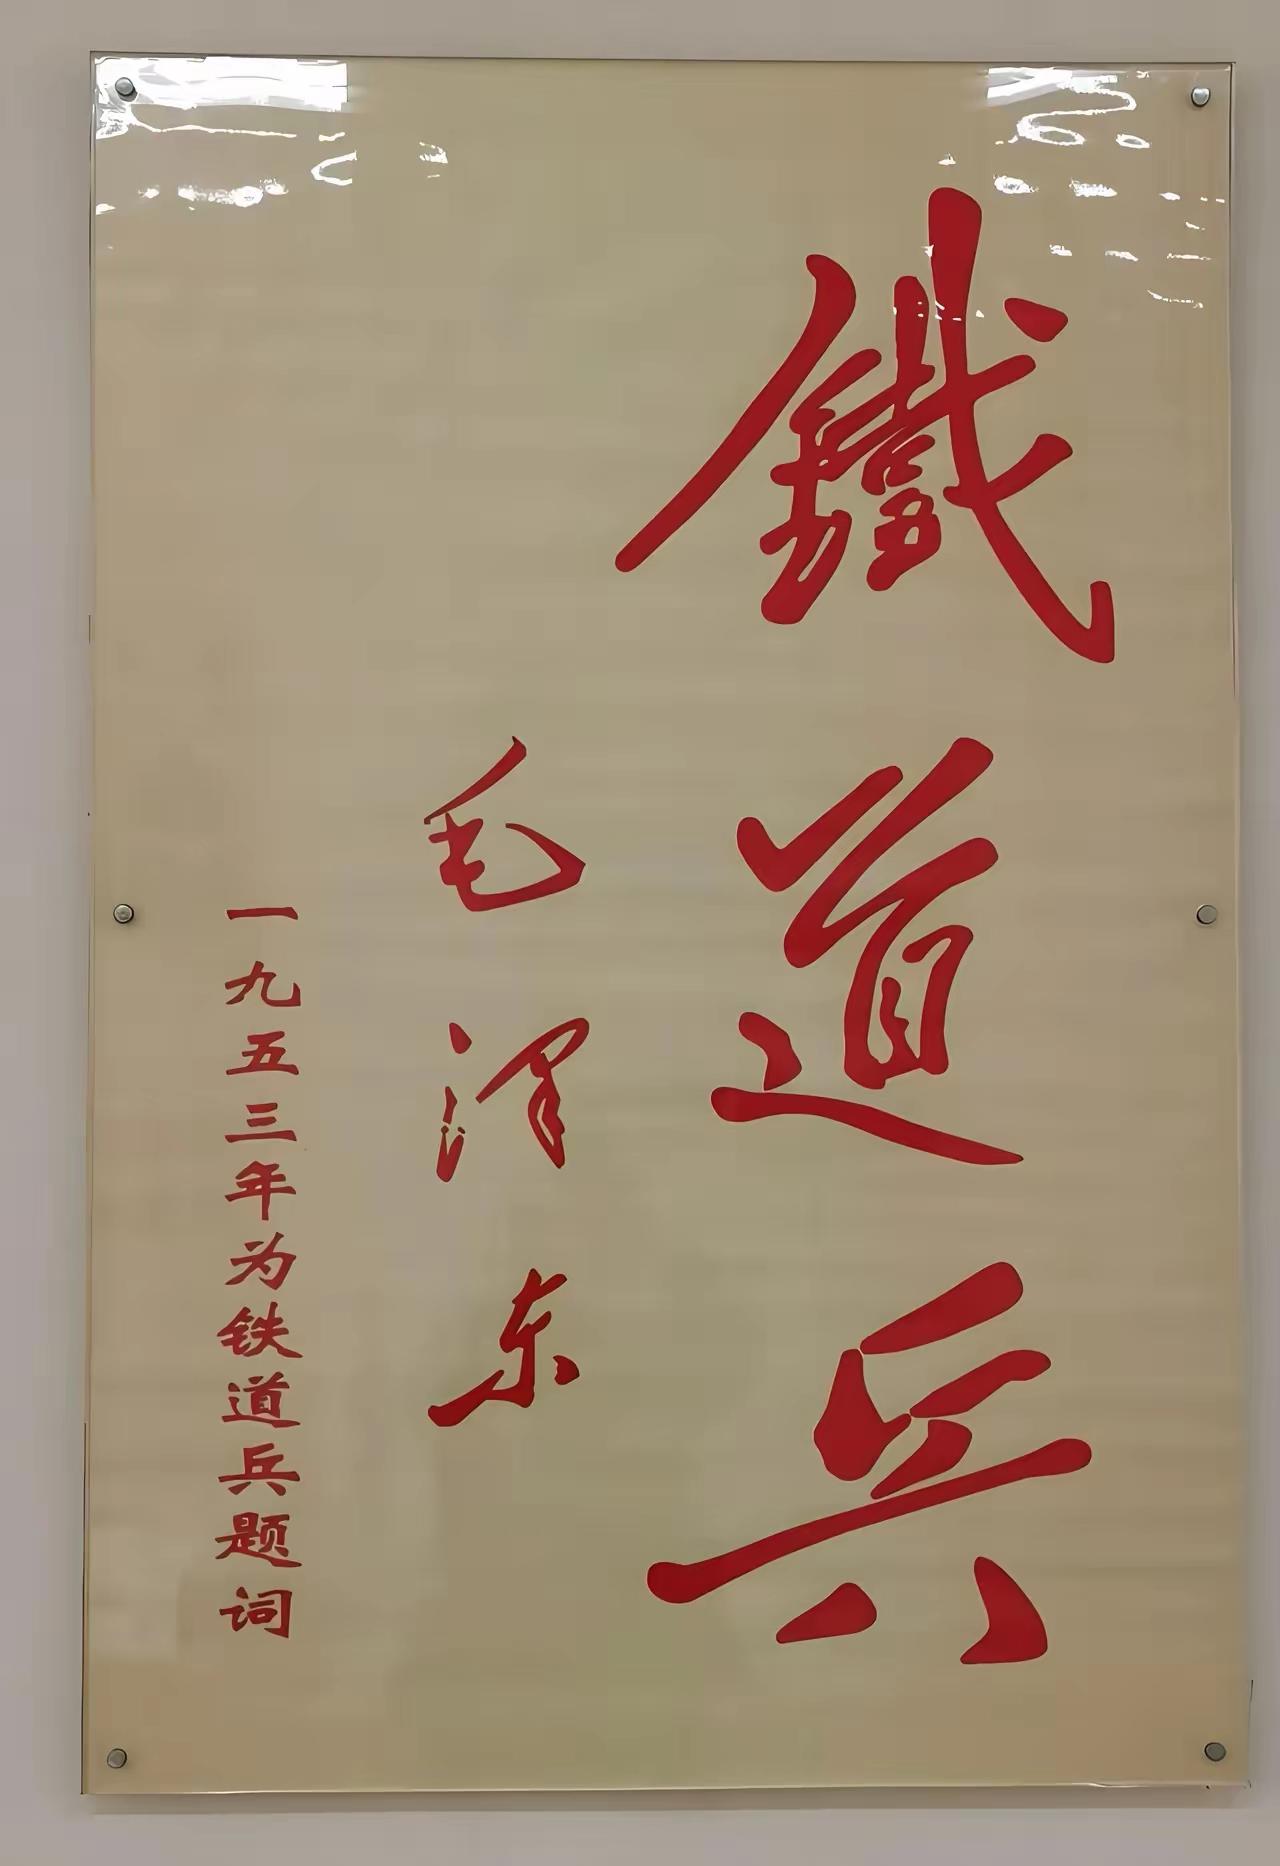 鐵道兵
毛泽东
一九五三年为铁道兵题词